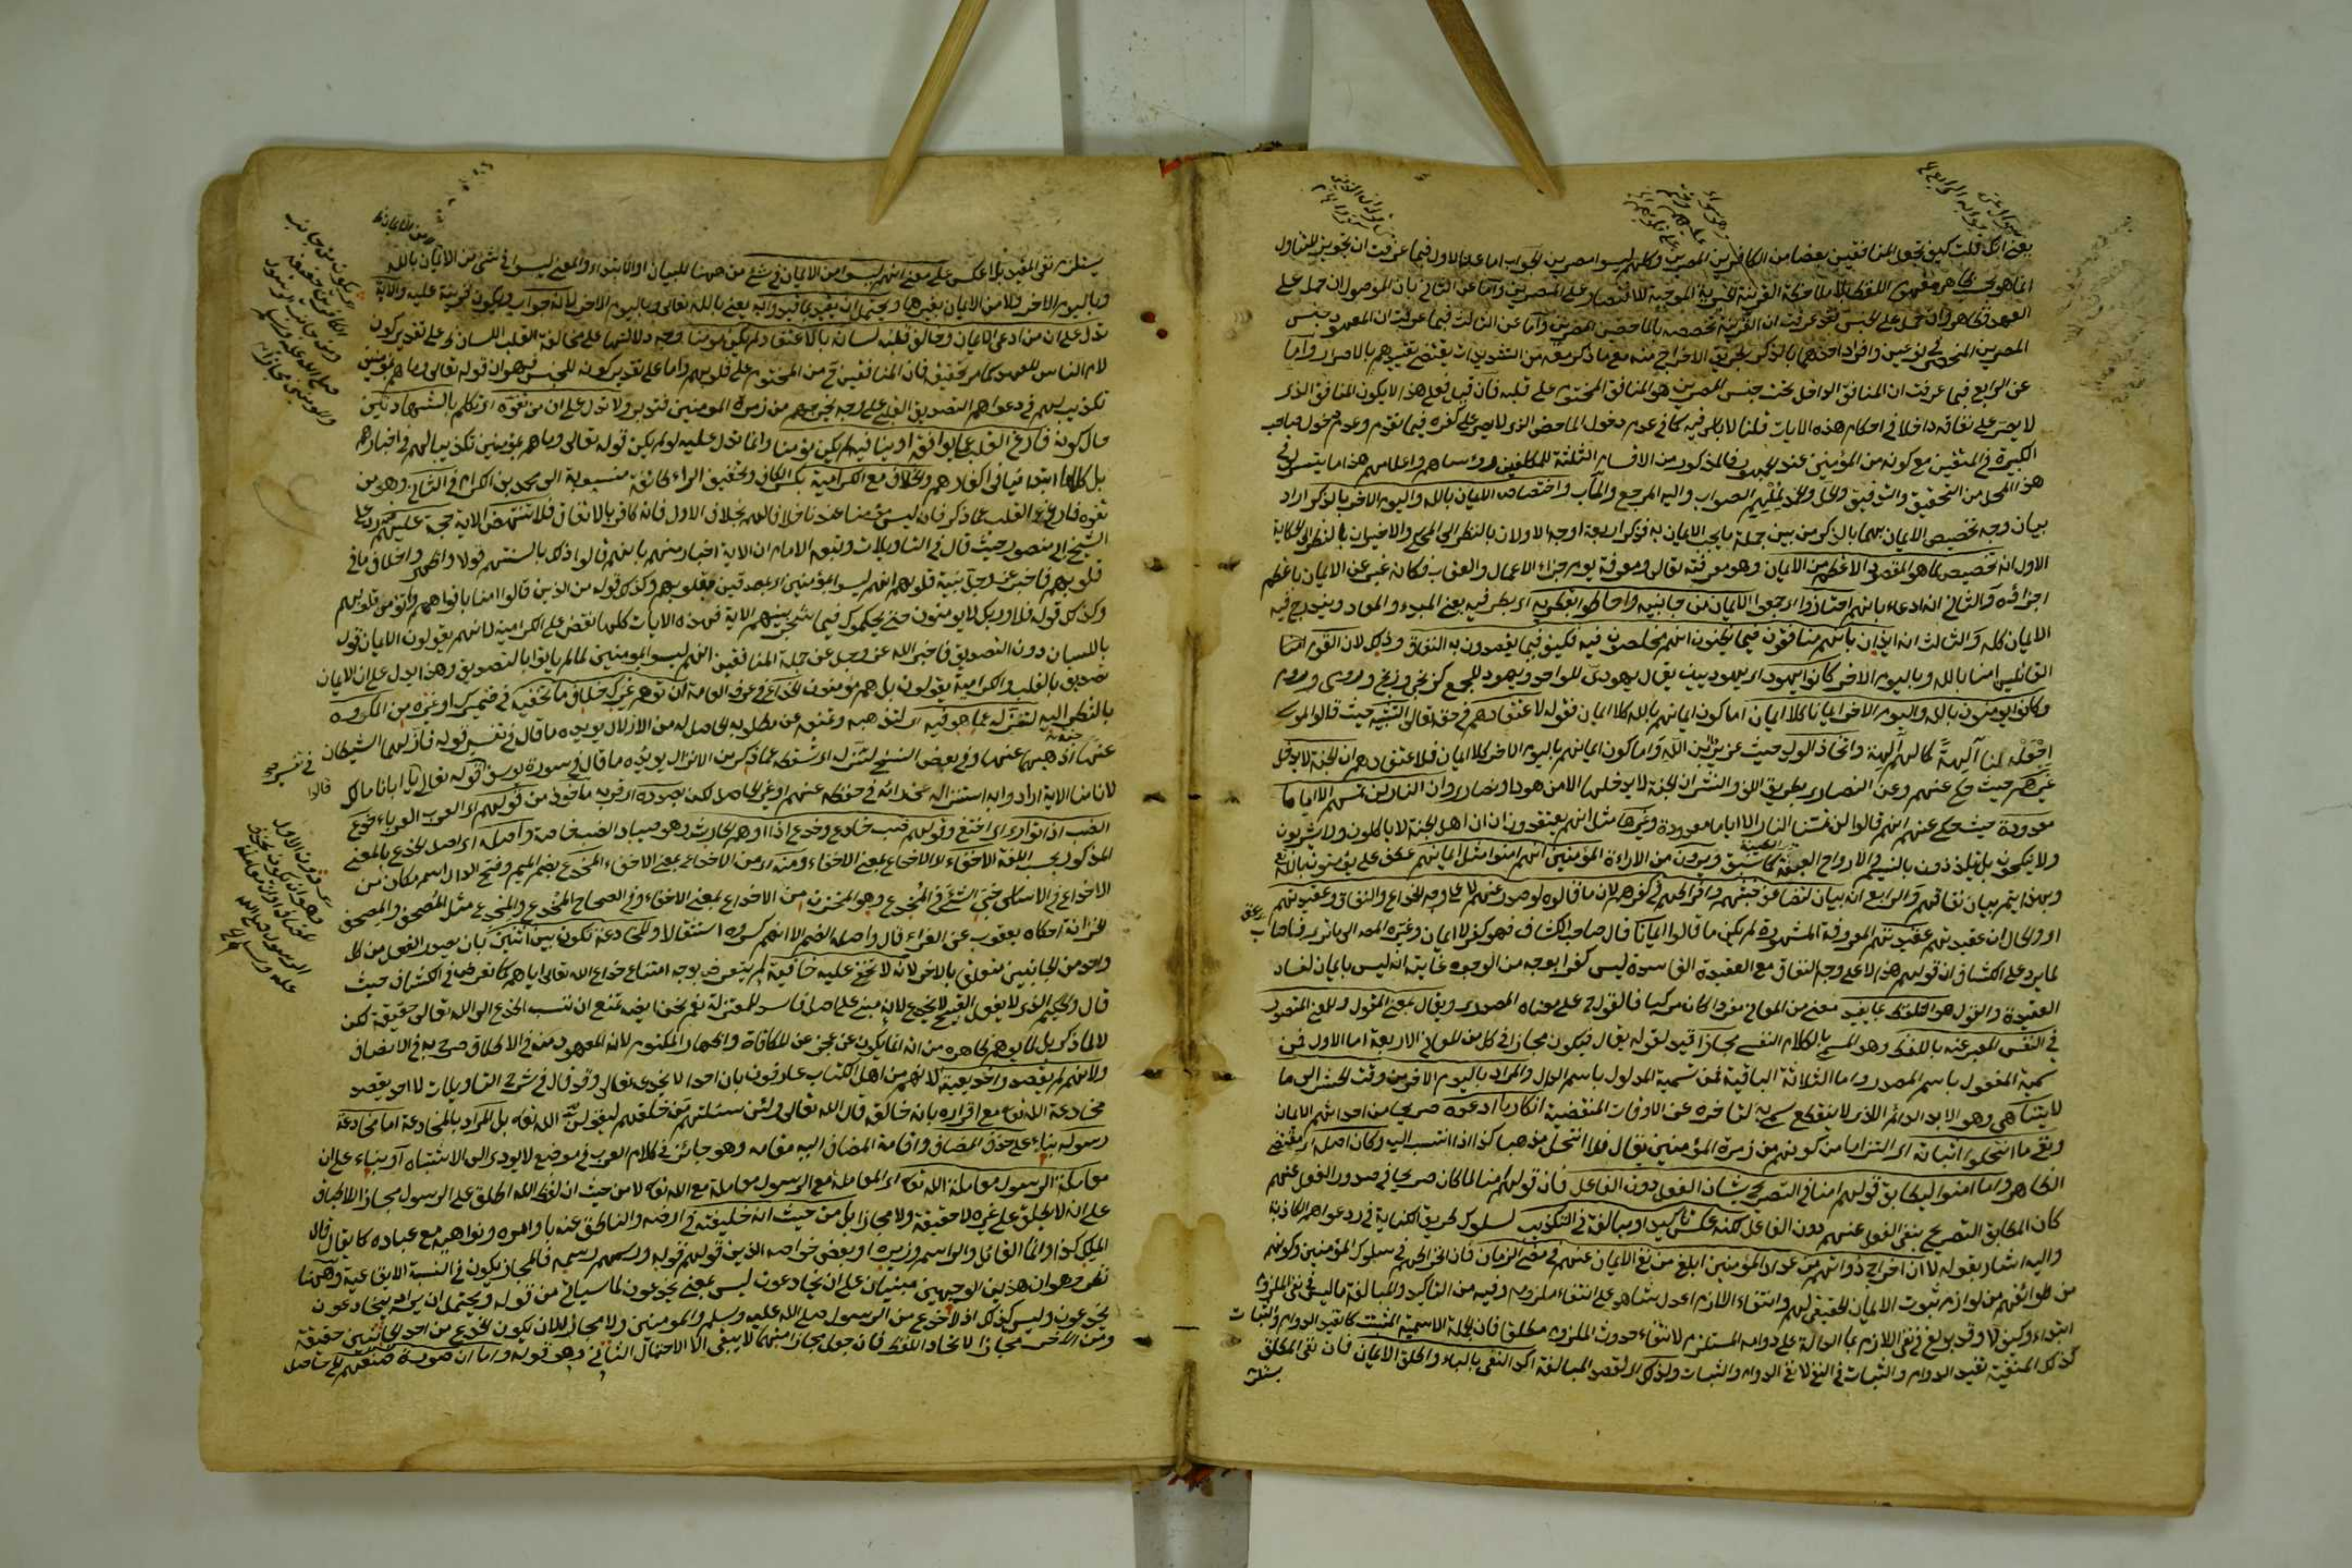 يعني انك قلت كيف تجعل المنافقين بعضا من الكافرين المصرين وكلهم ليسوا مصرين الجواب اما عن الاول فيما عرفت ان تجويز المتناول
انما هو بحسب ظاهر مفهوم اللفظ بلا ملاحظة القرينة الخبرية الموجبة للاقتصار على المصرين واما عن الثاني بان الموصول ان حمل على
العهد فظاهر وان حمل على الجنس فقد عرفت ان القرينة تخصصه بالماحضين المصرين واما عن الثالث فيما عرفت ان المعهود جنس
المصرين المنحصر في نوعين وافراد احدهما بالذكر بطريق الاخراج منه مع ما ذكر معه من التشديدات يقتضي تقييدهم بالاصرار واما
عن الرابع فيما عرفت ان المنافق الداخل تحت جنس المصرين هو المنافق المختوم على قلبه فان قيل فعلى هذا لا يكون المنافق الذي
لا يصر على نفاقه داخلا في احكام هذه الايات قلنا لا باس فيه كما في عدم دخول الماحض الذي لا يصر على كفره فيما تقدم وعدم دخول صاحب
الكبيرة في المتقين مع كونه من المؤمنين عند الجمهور فالمذكور من الاقسام الثلثة للمكلفين رؤساهم واعلامهم هذا ما يتيسر لي في
هذا المحل من التحقيق والتوفيق والحمد لملهم الصواب واليه المرجع والمآب واختصاص الايمان بالله واليوم الاخر بالذكر اراد
بيان وجه تخصيص الايمان بهما بالذكر من بين جملة ما يجب الايمان به فذكر اربعة اوجه الاولان بالنظر الى المحكي والاخيران بالنظر الى الحكاية
الاول انه تخصيص لما هو المقصود الاعظم من الايمان وهو معرفته تعالى ومعرفة يوم جزاء الاعمال والعقاب فكانه عبر عن الايمان باعظم
اجزائه والثاني انه ادعاء بانهم احتازوا اي جمعوا الايمان من جانبيه واحاطوا بقطريه اي بطرفيه يعني المبدء والمعاد ويندرج فيه
الايمان كله والثالث انه ايذان بانهم منافقون فيما يظنون انهم مخلصون فيه فكيف فيما يقصدون به النفاق وذلك لان القوم
القائلين امنا بالله وباليوم الاخر كانوا اليهود اي يهود بينه يقال يهودي للواحد ويهود للجمع كزنجي وزنج ورومي وروم
وكانوا يؤمنون بالله واليوم الاخر ايمانا كلا ايمان اما كون ايمانهم بالله كلا ايمان فقوله لاعتقادهم في حقه تعالى التشبيه حيث قالوا لموسى
اجعل لنا الها كما لهم آلهة واتخاذ الولد حيث عزير ابن الله واما كون ايمانهم باليوم الاخر كلا ايمان فلاعتقادهم ان الجنة لا يدخل
غيرهم حيث حكى عنهم وعن النصارى بطريق اللف والنشر ان الجنة لا يدخلها الا من هودا ونصارى وان النار لن تمسهم الا اياما
معدودة حيث حكى عنهم انهم قالوا لن تمسنا النار الا اياما معدودة وغيرها مثل انهم يعتقدون ان اهل الجنة لا ياكلون ولا يشربون
ولا ينكحون بل يتلذذون بالنسيم والارواح العبقة كما سبق ويرون من الاراءة المؤمنين انهم امنوا مثل ايمانهم
وبهذا يتم بيان نفاقهم والرابع انه بيان لتضاعف خبثهم وافراطهم في كفرهم لان ما قالوه لو صدر عنهم لا على وجه الخداع والنفاق وعقيدتهم
او والحال ان عقيدتهم عقيدتهم المعروفة المشهودة لم يكن ما قالوا ايمانا قال صاحب الكشاف فهو كفر لا ايمان وغيره المص الى ما ترى
لما يرد على الكشاف ان قولهم هذا لا على وجه النفاق مع العقيدة الفاسدة ليس كفرا بوجه من الوجوه غايته انه ليس بايمان لفساد
العقيدة والقول هو التلفظ بما يفيد معنى من المعاني مفردا كان مركبا فالقول على معناه المصدري ويقال بمعنى المقول وللمعنى المتصور
في النفس المعبر عنه باللفظ وهو المسمى بالكلام النفسي مجازا قيد لقوله يقال فيكون مجازا في كل من المعاني الاربعة اما الاول فمن
تسمية المفعول باسم المصدر واما الثلاثة الباقية فمن تسمية المدلول باسم الدال والمراد باليوم الاخر من وقت الحشر الى ما
لا يتناهى وهو الابد الدائم الذي لا ينقطع سمي به لتاخره عن الاوقات المنقضية انكار ما ادعوه صريحا من احداثهم الايمان
ونفي ما انتحلوا اثباته اي التزاما من كونهم من زمرة المؤمنين يقال فلان انتحل مذهب كذا اذا انتسب اليه وكان اصله اي مقتضى
الظاهر وما امنوا ليطابق قولهم امنا في التصريح بشان الفعل دون الفاعل فان قولهم امنا لما كان صريحا في صدور الفعل عنهم
كان المطابق التصريح بنفي الفعل عنهم دون الفاعل لكنه عكس تاكيدا ومبالغة في التكذيب لسلوك طريق الكناية في رد دعواهم الكاذبة
واليه اشار بقوله لان اخراج ذواتهم من عداد المؤمنين ابلغ من نفي الايمان عنهم في مضى الزمان فان انخراطهم في سلوك المؤمنين وكونهم
من طوائفهم من لوازم ثبوت الايمان الحقيقي لهم وانتفاء اللازم اعدل شاهد على انتفاء ملزومه وفيه من التاكيد والمبالغة ما ليس في نفي الملزوم
ابتداء وكيف لا وقد بولغ في نفي اللازم بما الدالة على دوامه المستلزم لانتفاء حدوث الملزوم مطلقا فان الجملة الاسمية المثبت كما تفيد الدوام والثبات
كذلك المنفية تفيد الدوام والثبات في النفي لا نفي الدوام والثبات ولذلك اي لقصد المبالغة اكد النفي بالباء واطلق الايمان فان نفي المطلق
يستلزم
يستلزم نفي المقيد بلا عكس على معنى انهم ليسوا من الايمان في شئ من ههنا للبيان او الابتداء والمعنى ليسوا في شئ من الايمان بالله
وباليوم الاخر ولا من الايمان بغيرهما ويحتمل ان يقيد بما قيد وابه يعني بالله تعالى وباليوم الاخر لانه جوابه ويكون قرينة عليه والاية
تدل على ان من ادعى الايمان وخالف قلبه لسانه بالاعتقاد لم يكن مؤمنا وجه دلالتها على مخالفة القلب اللسان على تقدير كون
لام الناس للعهد كما مر تحقيقه فان المنافقين ح من المختوم على قلوبهم واما على تقدير كونه للجنس فهو ان قوله تعالى وما هم بمؤمنين
تكذيب لهم في دعواهم التصديق القلبي على وجه يخرجهم من زمرة المؤمنين فتدبر ولا تدل على ان من تفوه اي تكلم بالشهادتين
حال كونه فارغ القلب عما يوافقه او ينافيه لم يكن مؤمنا وانما تدل عليه لو لم يكن قوله تعالى وما هم بمؤمنين تكذيبا لهم في اخبارهم
بل كلاما ابتدائيا في انكارهم والخلاف مع الكرامية بكسر الكاف وتخفيف الراء طائفة منسوبة الى محمد بن الكرام في الثاني وهو من
تفوه فارغ القلب عما ذكر فانه ليس مؤمنا عندنا خلافا لهم بخلاف الاول فانه كافر بالاتفاق فلا تنتهض الاية حجة عليهم
الشيخ ابي منصور حيث قال في التاويلات وتبعه الامام ان الاية اخبار منهم بانهم قالوا ذلك بالسنتهم قولا واظهروا خلاف ما في
قلوبهم فاخبر عز وجل نبيه انهم ليسوا بمؤمنين اي بمصدقين بقلوبهم وكذلك قوله من الذين قالوا امنا بافواههم ولم تؤمن قلوبهم
وكذلك قوله فلا وربك لا يؤمنون حتى يحكموك فيما شجر بينهم الاية فهذه الايات كلها تنقض على الكرامية لانهم يقولون الايمان قول
باللسان دون التصديق فاخبر الله عز وجل عن جملة المنافقين انهم ليسوا بمؤمنين لما لم ياتوا بالتصديق وهذا يدل على ان الايمان
تصديق بالقلب والكرامية يقولون بل هم مؤمنون الخداع في عرف العامة ان توهم غيرك خلاف ما تخفيه في ضميرك او غيره من المكروه
بالنظر اليه لتنزله عما هو فيه اي لتذهبه وتمنعه عن مطلوبه الحاصل له من الازلال يؤيده ما قال في تفسير قوله فازلهما الشيطان
عنها اذهبهما عنها وفي بعض النسخ لتنزله اي تسقطه عما ذكر من الانزال يؤيده ما قال في سورة يوسف في تفسير قوله تعالى قالوا يا ابانا مالك
لا تامنا الاية اراد وابه استنزاله عن رائه في حفظه عنهم او غير الحاصل لكنه بصدده اي قربه ماخوذ من قولهم اي العرب العرباء خدع
الضب اذا توارى اي اختفى وقولهم ضب خادع وخدع اذا اوهم الحارث وهو صياد الضب خاصة واصله اي اصل الخدع بالمعنى
المذكور بحسب اللغة الاخفاء لا الاخداع بمعنى الاخفاء ومنه اي من الاخداع بمعنى الاخفاء المخدع بضم الميم وفتح الدال اسم مكان من
الاخداع في الاساس خبي الشئ في المخدع وهو المخزن من الاخداع بمعنى الاخفاء وفي الصحاح المخدع والمخدع مثل المصحف والمصحف
الخزانة احكاه يعقوب عن الفراء قال واصله الضم الا انهم كسروه استثقالا والمخادعة تكون بين اثنين بان يصدر الفعل من كل
واحد من الجانبين متعلق بالاخر لانه لا تخفى عليه خافية لم يتعرض بوجه امتناع خداع الله تعالى اياهم كما تعرض في الكشاف حيث
قال والحكيم الذي لا يفعل القبيح لا يخدع لانه مبني على اصل فاسد للمعتزلة نعم نحن ايضا نمنع ان ننسب الخدع الى الله تعالى حقيقة لكن
لا لما ذكر بل لما يوهم ظاهره من انه انما يكون عن عجز عن المكافاة واظهار المكتوم لانه المعهود منه في الاطلاق صرح به في الانصاف
ولانهم لم يقصدوا خديعته لانهم من اهل الكتاب عارفون بان احدا لا يخدع الله تعالى وقد قال في شرح التاويلات لا احد يقصد
مخادعة الله تع مع اقراره بانه خالقه قال الله تعالى ولئن سئلتهم من خلقهم ليقولن الله تعه بل المراد بالمخادعة اما مخادعة
رسوله بناء على حذف المضاف واقامة المضاف اليه مقامه وهو جائز في كلام العرب في موضع لا يؤدي الى الاشتباه او بناء على ان
معاملة الرسول معاملة الله تعه اي المعاملة مع الرسول معاملة مع الله تعه لا من حيث ان لفظ الله اطلق على الرسول مجازا لاطباق
على ان لا يطلق على غيره لا حقيقة ولا مجازا بل من حيث انه خليفته في ارضه والناطق عنه باوامره ونواهيه مع عباده كما يقال قال
الملك كذا وانما القائل والراسم وزيره او بعض خواصه الذين قولهم قوله ورسمهم رسمه فالمجاز يكون في النسبة الايقاعية وههنا
نظر وهو ان هذين الوجهين مبنيان على ان يخادعون ليس بمعنى يخدعون لما سياتي من قوله ويحتمل ان يراد بيخادعون
يخدعون وليس كذلك اذ لا خدع من الرسول صلى الله عليه وسلم والمؤمنين ولا مجاز لان يكون الخدع من احد الجانبين حقيقة
ومن الاخر مجازا لاتحاد اللفظ فان جعل مجازا منهما لا يبقى الا الاحتمال الثاني وهو قوله واما ان صورة صنعهم الحاصل